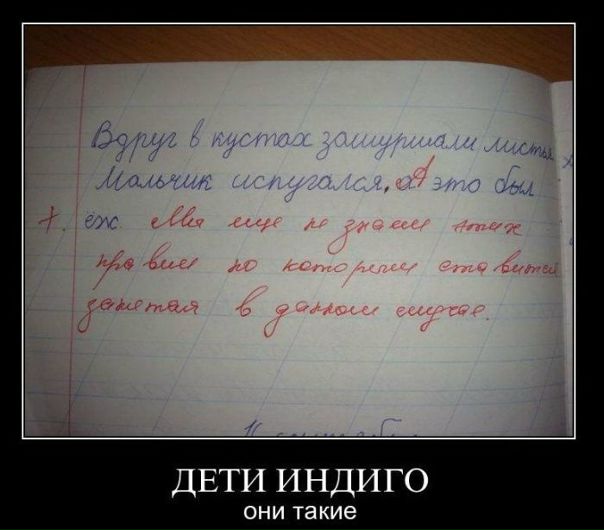 Вдруг в кустах зашуршали листья
Мальчик испугался, а А это был
+. ёж. Мы еще не знаем этих
правил по которым ставится
запятая в данном случае.
ДЕТИ ИНДИГО
они такие